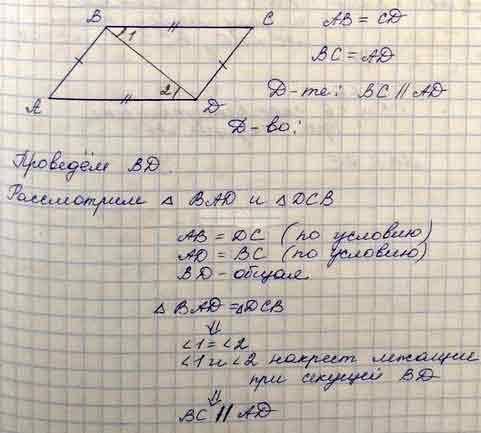 B
1
C
A
2
D
AB = CD
BC = AD
Д-ть: BC || AD
Д-во:
Проведём BD.
Рассмотрим △ BAD и △DCB
AB = DC (по условию)
AD = BC (по условию)
BD - общая
△ BAD = △DCB
⇓
∠1 = ∠2
∠1 и ∠2 накрест лежащие
при секущей BD
⇓
BC || AD